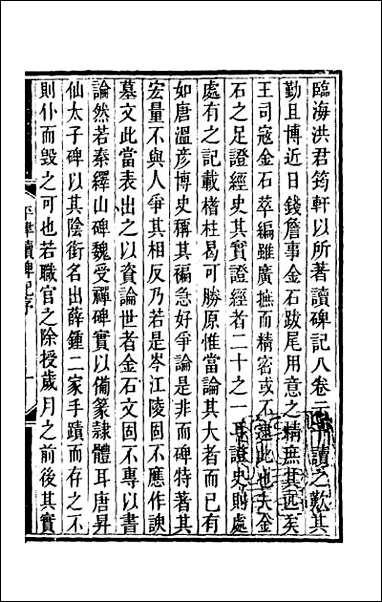 臨海洪君筠軒以所著讀碑記八卷示讀之歎其
勤且博近日錢詹事金石跋尾用意之精庶其近矣
王司寇金石萃編雖廣摭而精密或不逮此也夫金
石之足證經史其實證經者二十之一耳證史則處
處有之記載楮杜曷可勝原惟當論其大者而已有
如唐溫彥博史稱其褊急好爭論是非而碑特著其
宏量不與人爭其相反乃若是岑江陵固不應作諛
墓文此當表出之以資論世者金石文固不專以書
論然若秦繹山碑魏受禪碑實以備篆隸體耳唐昇
仙太子碑以其陰銜名出薛鍾二家手蹟而存之不
則仆而毀之可也若職官之除授歲月之前後其實
平津讀碑記序
一